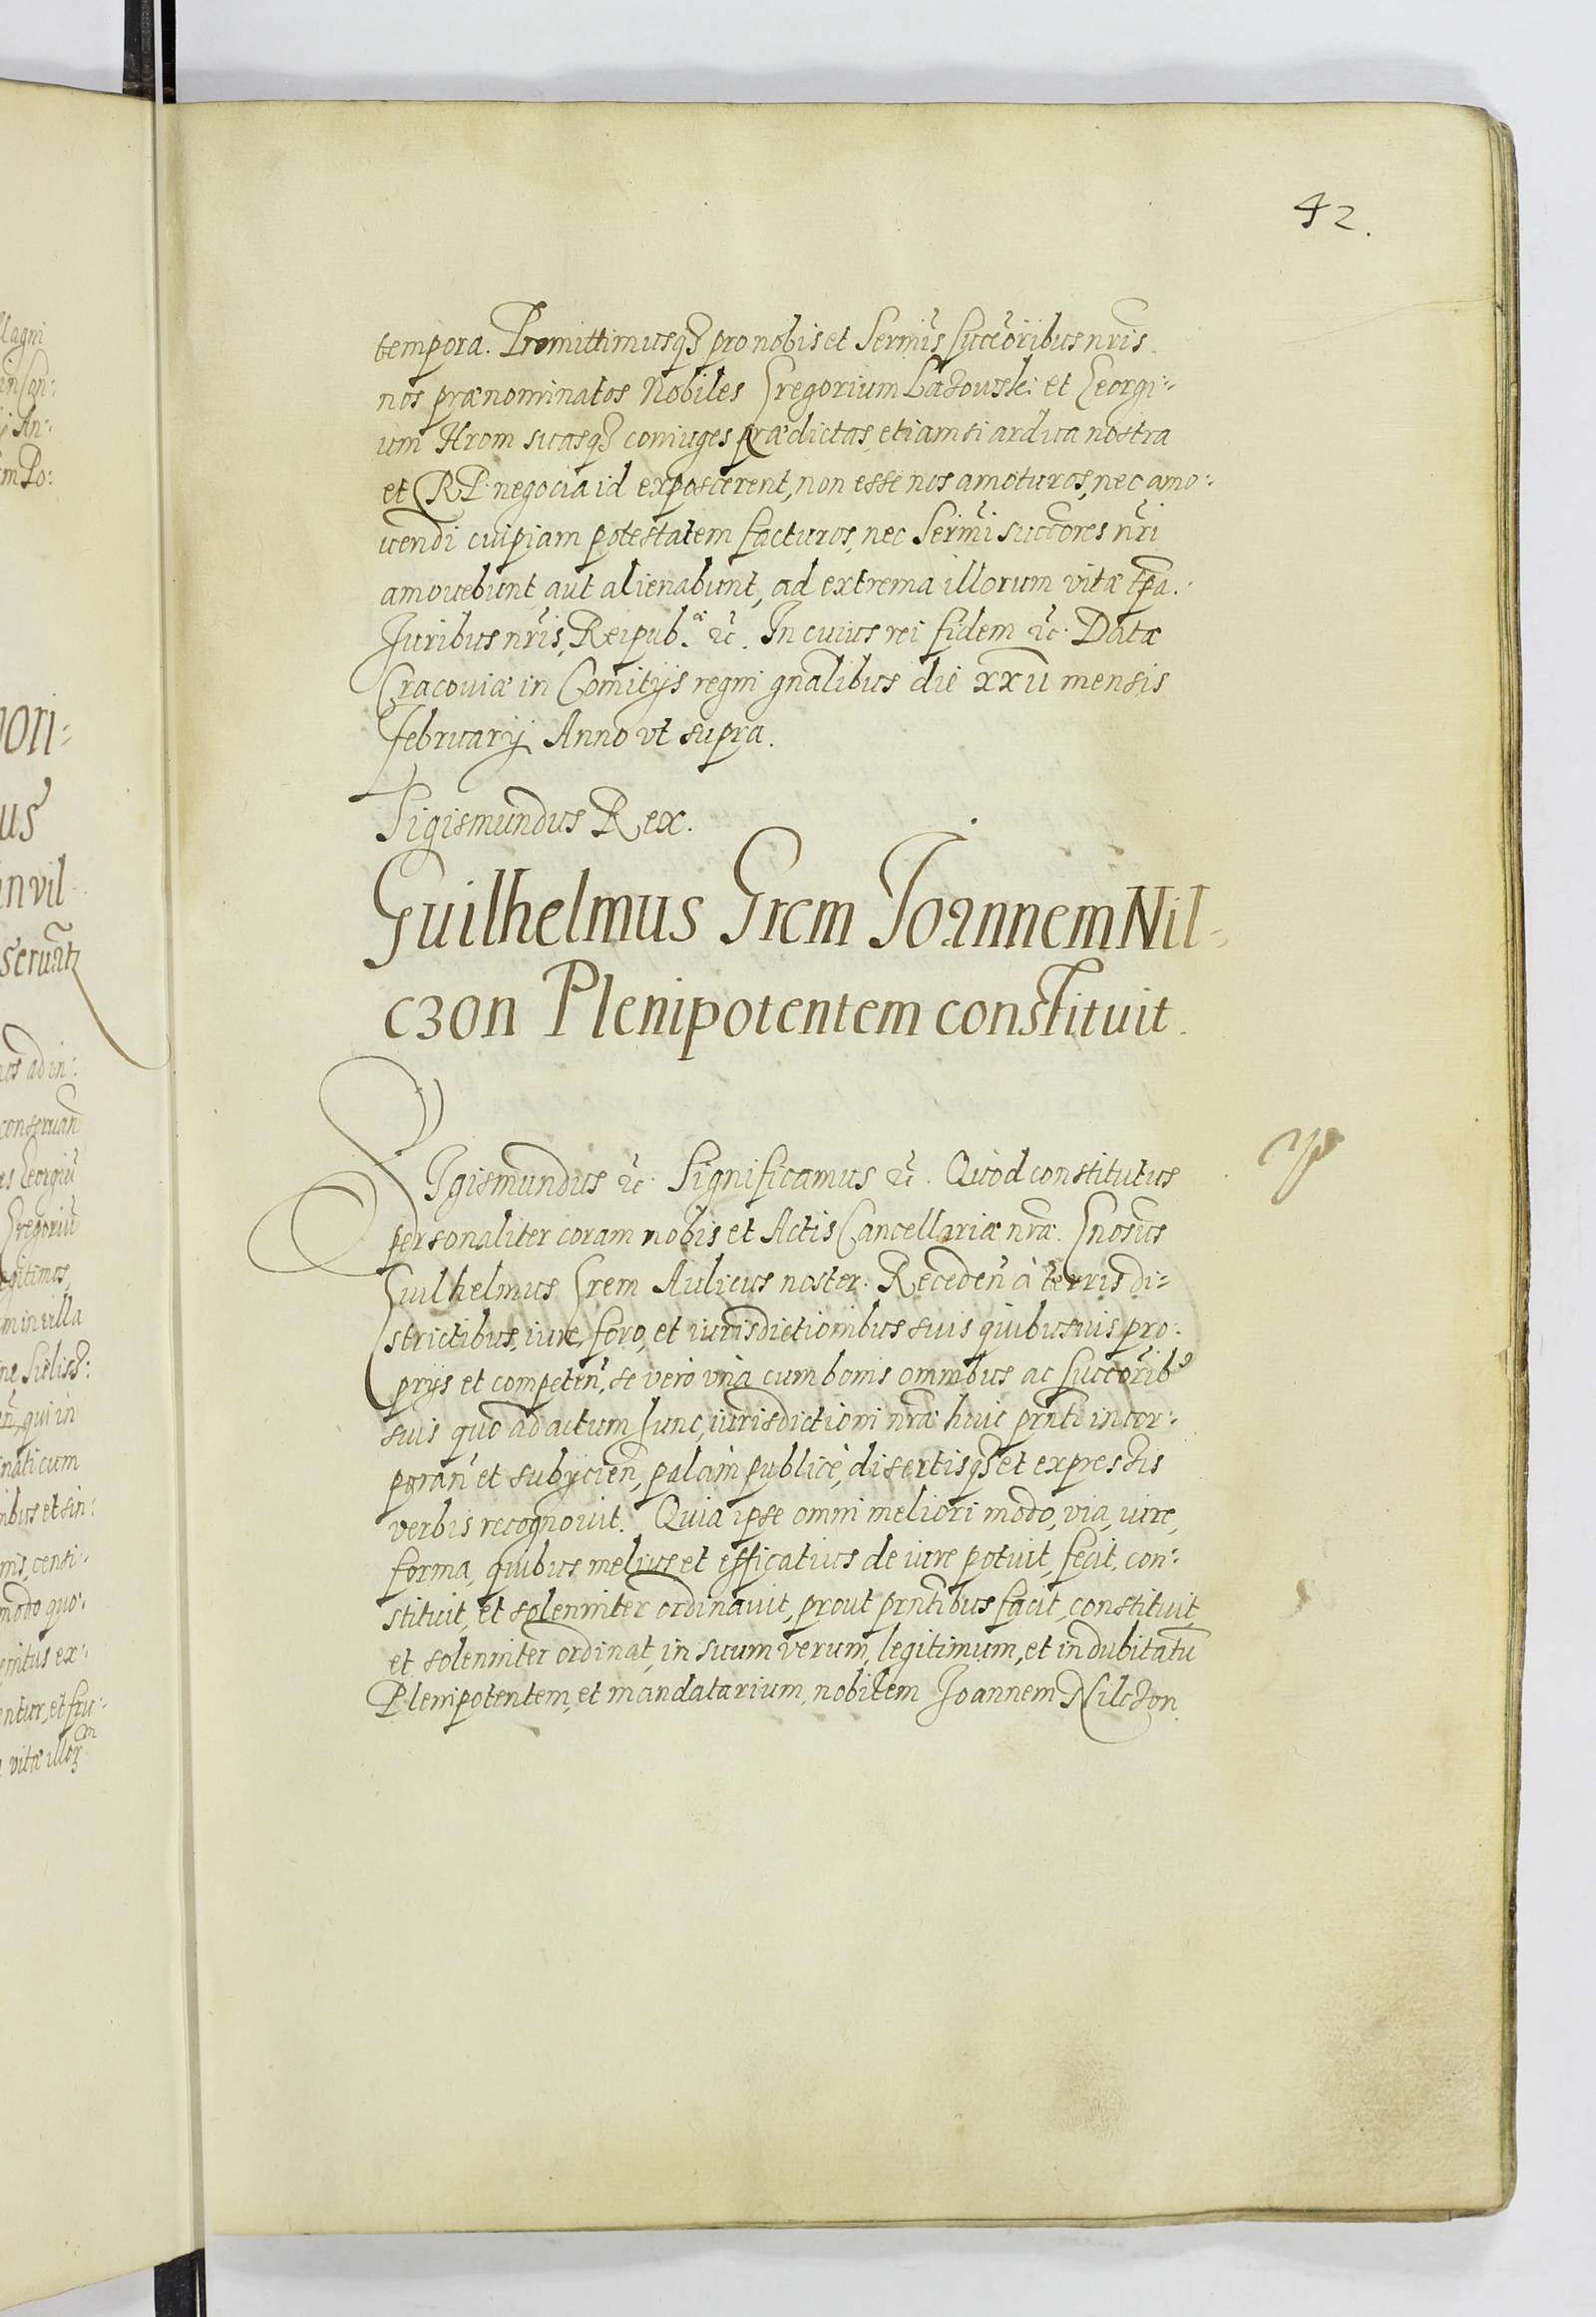 42.
tempora. Promittimusq₃ pro nobis et Sermis succoribus nris
nos prænominatos Nobiles Gregorium Laszowski et Georgi:
um Hrom suasq₃ coniuges prædictas, etiam si ardua nostra
et RP. negocia id exposcerent, non esse nos amoturos, nec amo:
uendi cuipiam potestatem facturos, nec Sermi succores nri
amouebunt aut alienabunt, ad extrema illorum vitæ tpa.
Juribus nris, Reipub. æ &c. In cuius rei fidem &c. Datæ
Cracouiæ in Comitijs regni gnalibus die xxii mensis
february Anno vt supra.
Sigismundus Rex.
Guilhelmus Grem Joannem Nil-
czon Plenipotentem constituit.
SIgismundus &c. Significamus &c. Quod constitutus
personaliter coram nobis et Actis Cancellariæ nræ. Gnosus
Guilhelmus Grem Aulicus noster. Receden à terris di-
strictibus, iure, foro, et iurisdictionibus suis quibusuis pro:
prijs et competen, se vero vnà cum bonis omnibus ac succorib9
suis quo ad actum hunc, iurisdictioni nræ huic prnti incor:
poran et subijcien, palàm publicè, disertisq₃ et expressis
verbis recognouit. Quia ipse omni meliori modo, via, iure,
forma, quibus melius et efficatius de iure potuit, fecit, con:
stituit, et solenniter ordinauit, prout prntibus facit, constituit,
et solenniter ordinat, in suum verum, legitimum, et indubitatū
Plenipotentem, et mandatarium, nobilem Joannem Nilczon